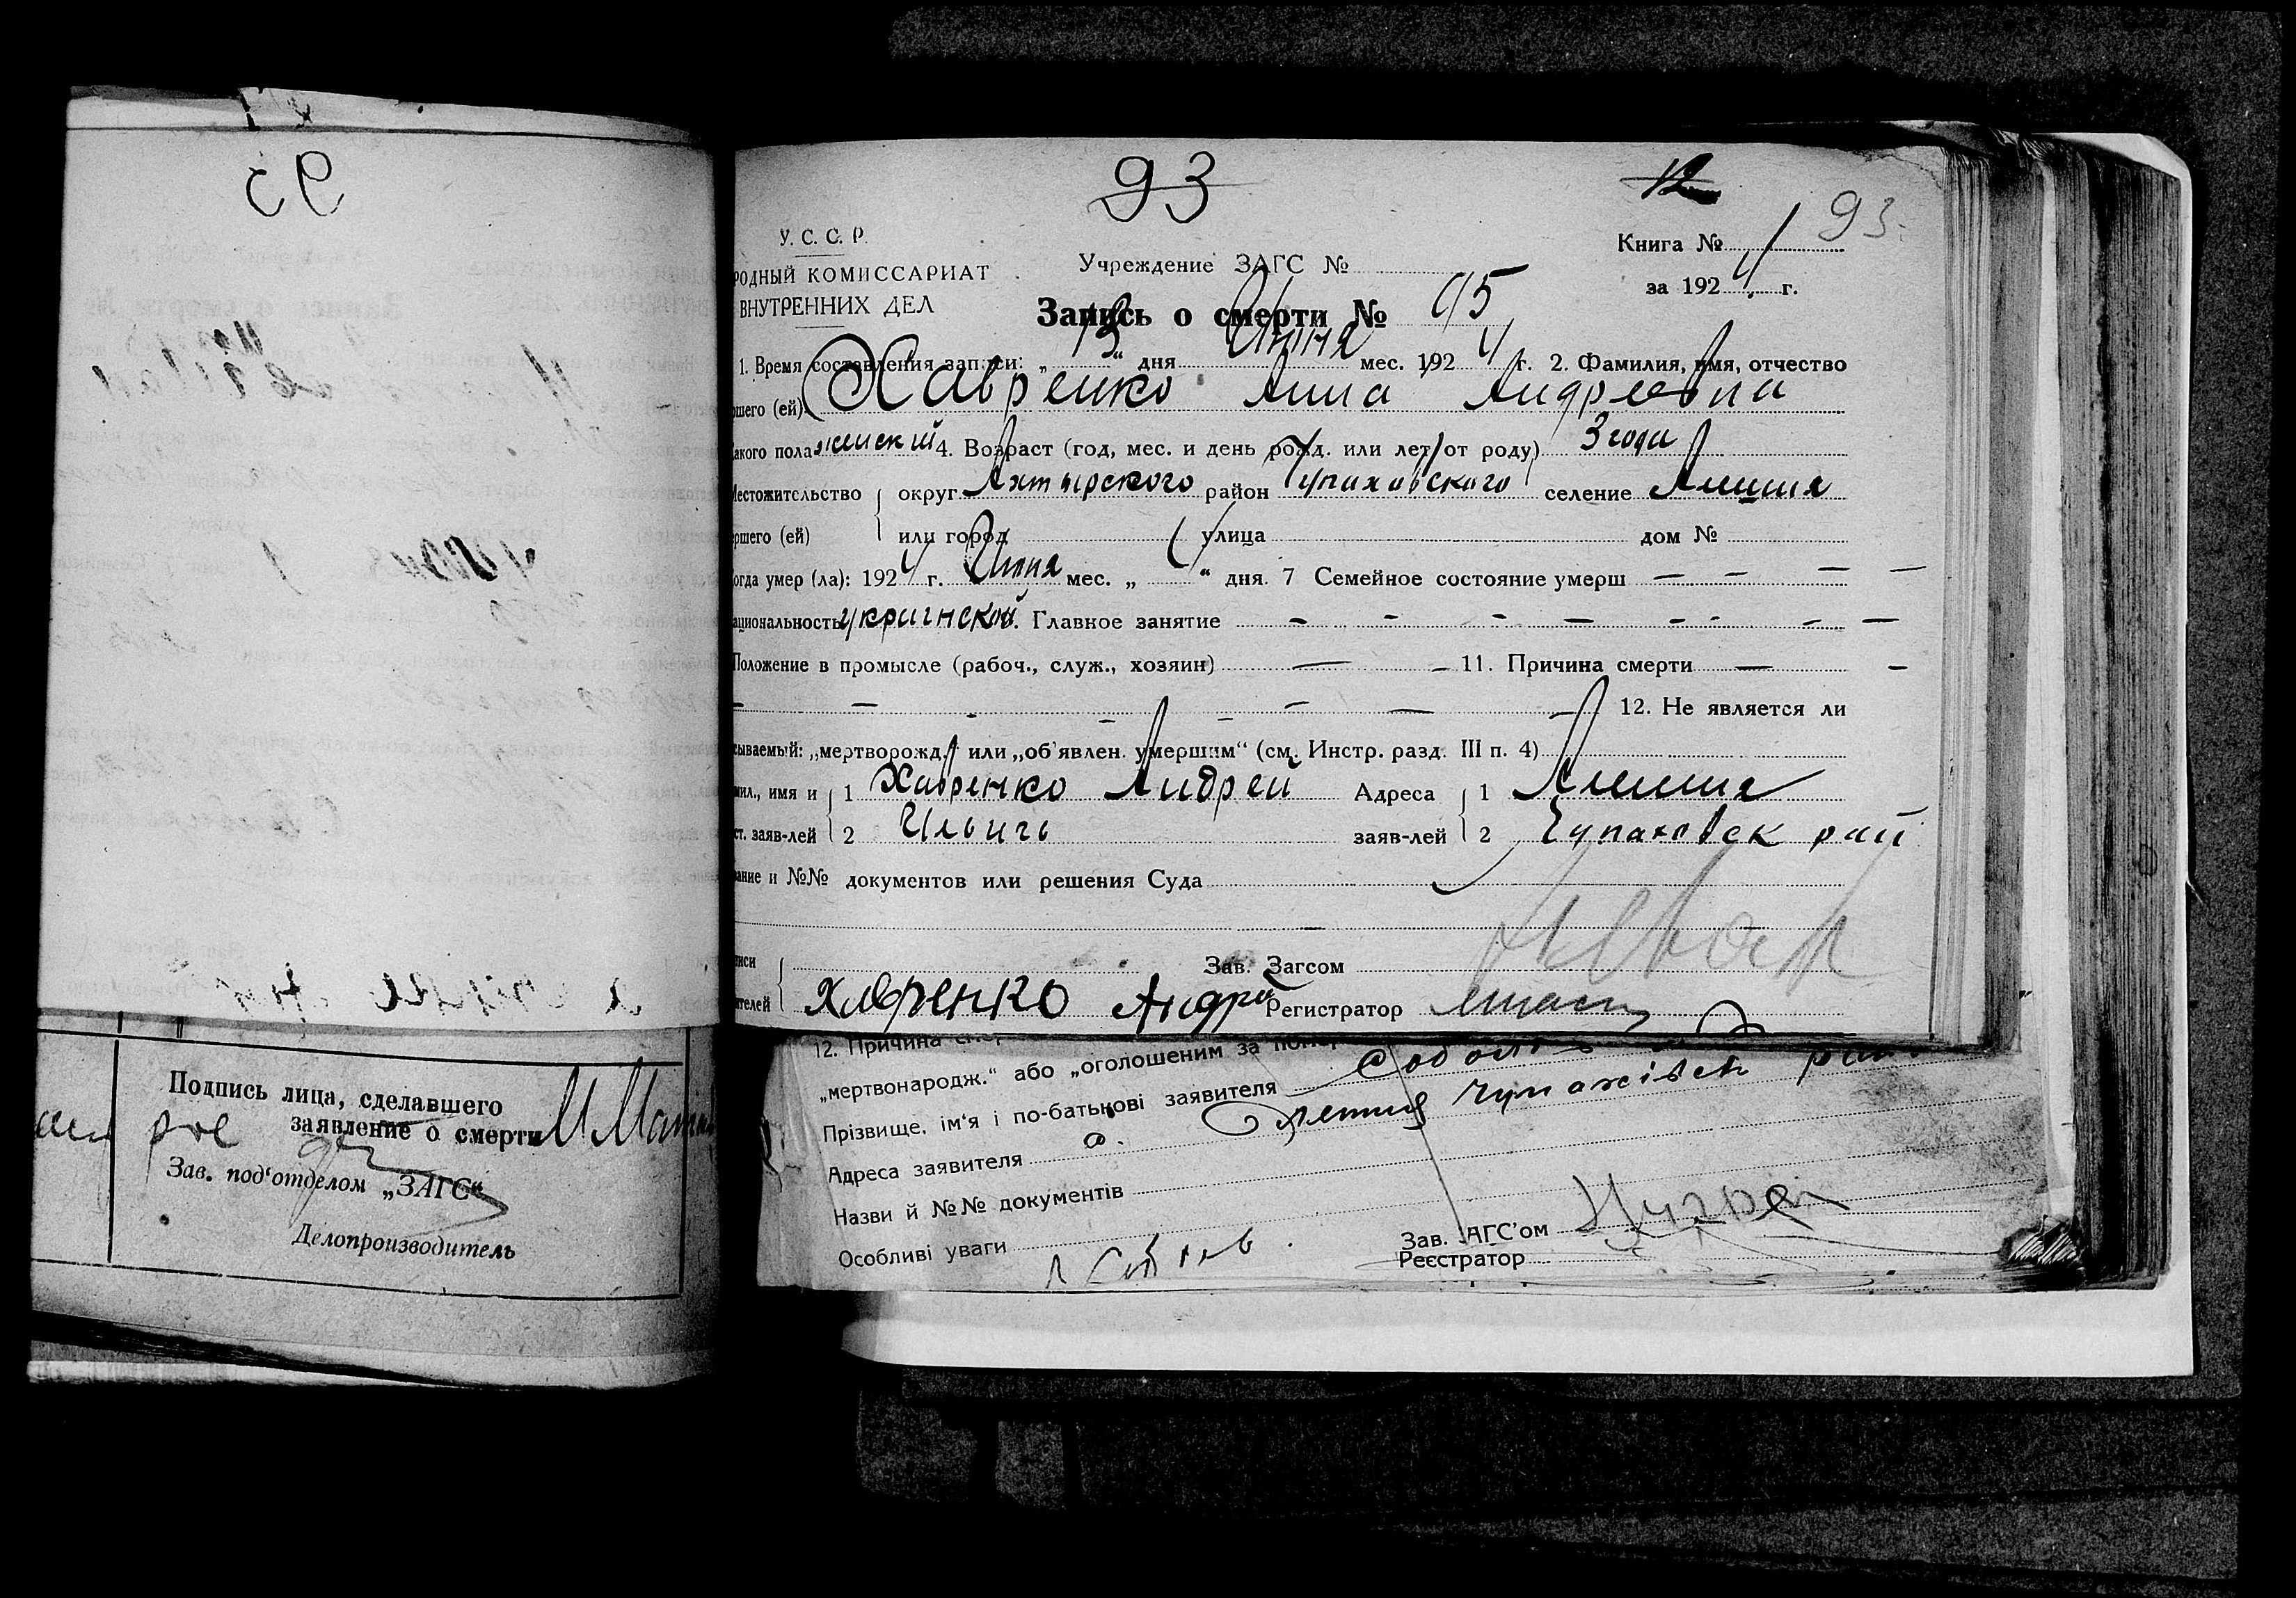 93
12
93.
У. С. С. Р.
РОДНЫЙ КОМИССАРИАТ
ВНУТРЕННИХ ДЕЛ
Учреждение ЗАГС №
Книга № 1
за 1924 г.
Запись о смерти № 95
1. Время составления записи: „13“ дня Июня мес. 1924 г. 2. Фамилия, имя, отчество
ршего (ей) Хавренко Анна Андреевна
акого пола женский 4. Возраст (год, мес. и день рожд. или лет от роду) 3 года
Местожительство округ Ахтырского район Чупаховского селение Алешня
ершего (ей) или город улица дом №
огда умер (ла): 1924 г. Июня мес. „ “ дня. 7 Семейное состояние умерш — — — —
ациональность . Главное занятие — — — — — — —
Положение в промысле (рабоч., служ., хозяин) — — 11. Причина смерти — —
— — — — — — — — 12. Не является ли
сываемый: „мертворожд.“ или „об'явлен. умершим“ (см. Инстр. разд. III п. 4)
мил., имя и 1 Хавренко Андрей Адреса 1 Алешня
ст. заяв-лей 2 Ильичь заяв-лей 2 Чупаховск рай
вание и №№ документов или решения Суда
писи Зав. Загсом
ителей Хавренко Андрей Регистратор
12. Причина
„мертвонародж.“ або „оголошеним за
Прізвище, ім'я і по-батькові заявителя
Адреса заявителя чупахівск
Назви й №№ документів
Особливі уваги
Зав. АГС'ом
Реєстратор
Подпись лица, сделавшего
заявление о смерти
Зав. под'отделом „ЗАГС“
Делопроизводитель